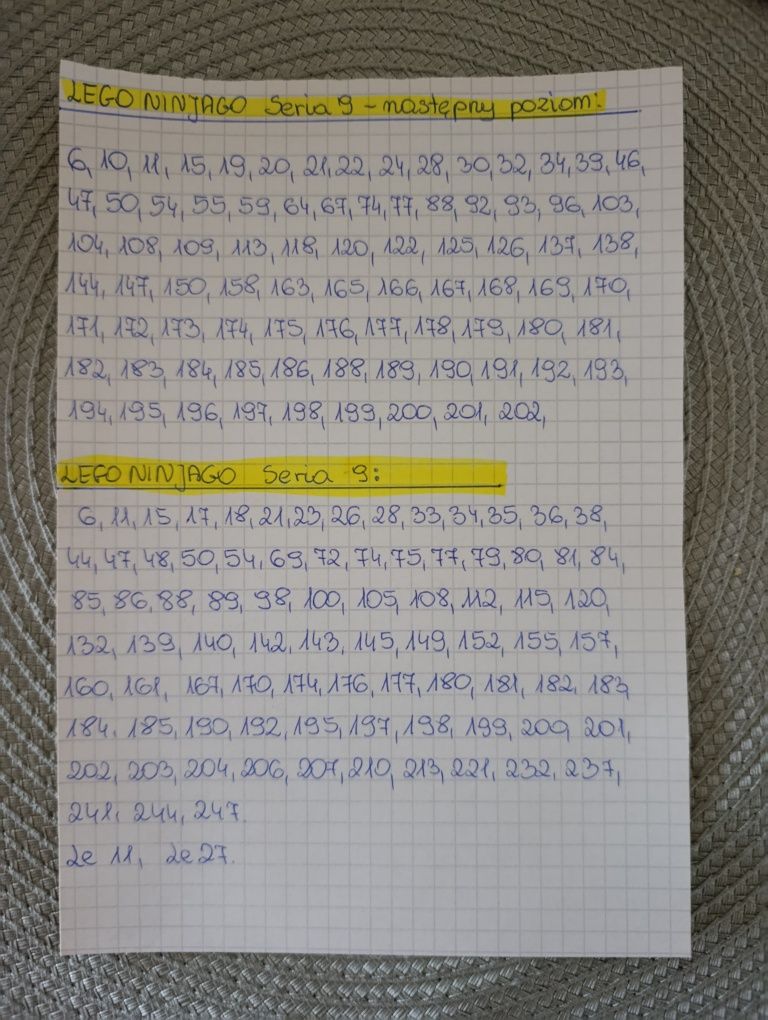 LEGO NINJAGO Seria 9 - następny poziom:
6, 10, 11, 15, 19, 20, 21, 22, 24, 28, 30, 32, 34, 39, 46,
47, 50, 54, 55, 59, 64, 67, 74, 77, 88, 92, 93, 96, 103,
104, 108, 109, 113, 118, 120, 122, 125, 126, 137, 138,
144, 147, 150, 158, 163, 165, 166, 167, 168, 169, 170,
171, 172, 173, 174, 175, 176, 177, 178, 179, 180, 181,
182, 183, 184, 185, 186, 188, 189, 190, 191, 192, 193,
194, 195, 196, 197, 198, 199, 200, 201, 202,
LEGO NINJAGO Seria 9:
6, 11, 15, 17, 18, 21, 23, 26, 28, 33, 34, 35, 36, 38,
44, 47, 48, 50, 54, 69, 72, 74, 75, 77, 79, 80, 81, 84,
85, 86, 88, 89, 98, 100, 105, 108, 112, 115, 120,
132, 139, 140, 142, 143, 145, 149, 152, 155, 157,
160, 161, 167, 170, 174, 176, 177, 180, 181, 182, 183,
184, 185, 190, 192, 195, 197, 198, 199, 200, 201,
202, 203, 204, 206, 207, 210, 213, 221, 232, 237,
241, 244, 247.
Le 11, Le 27.